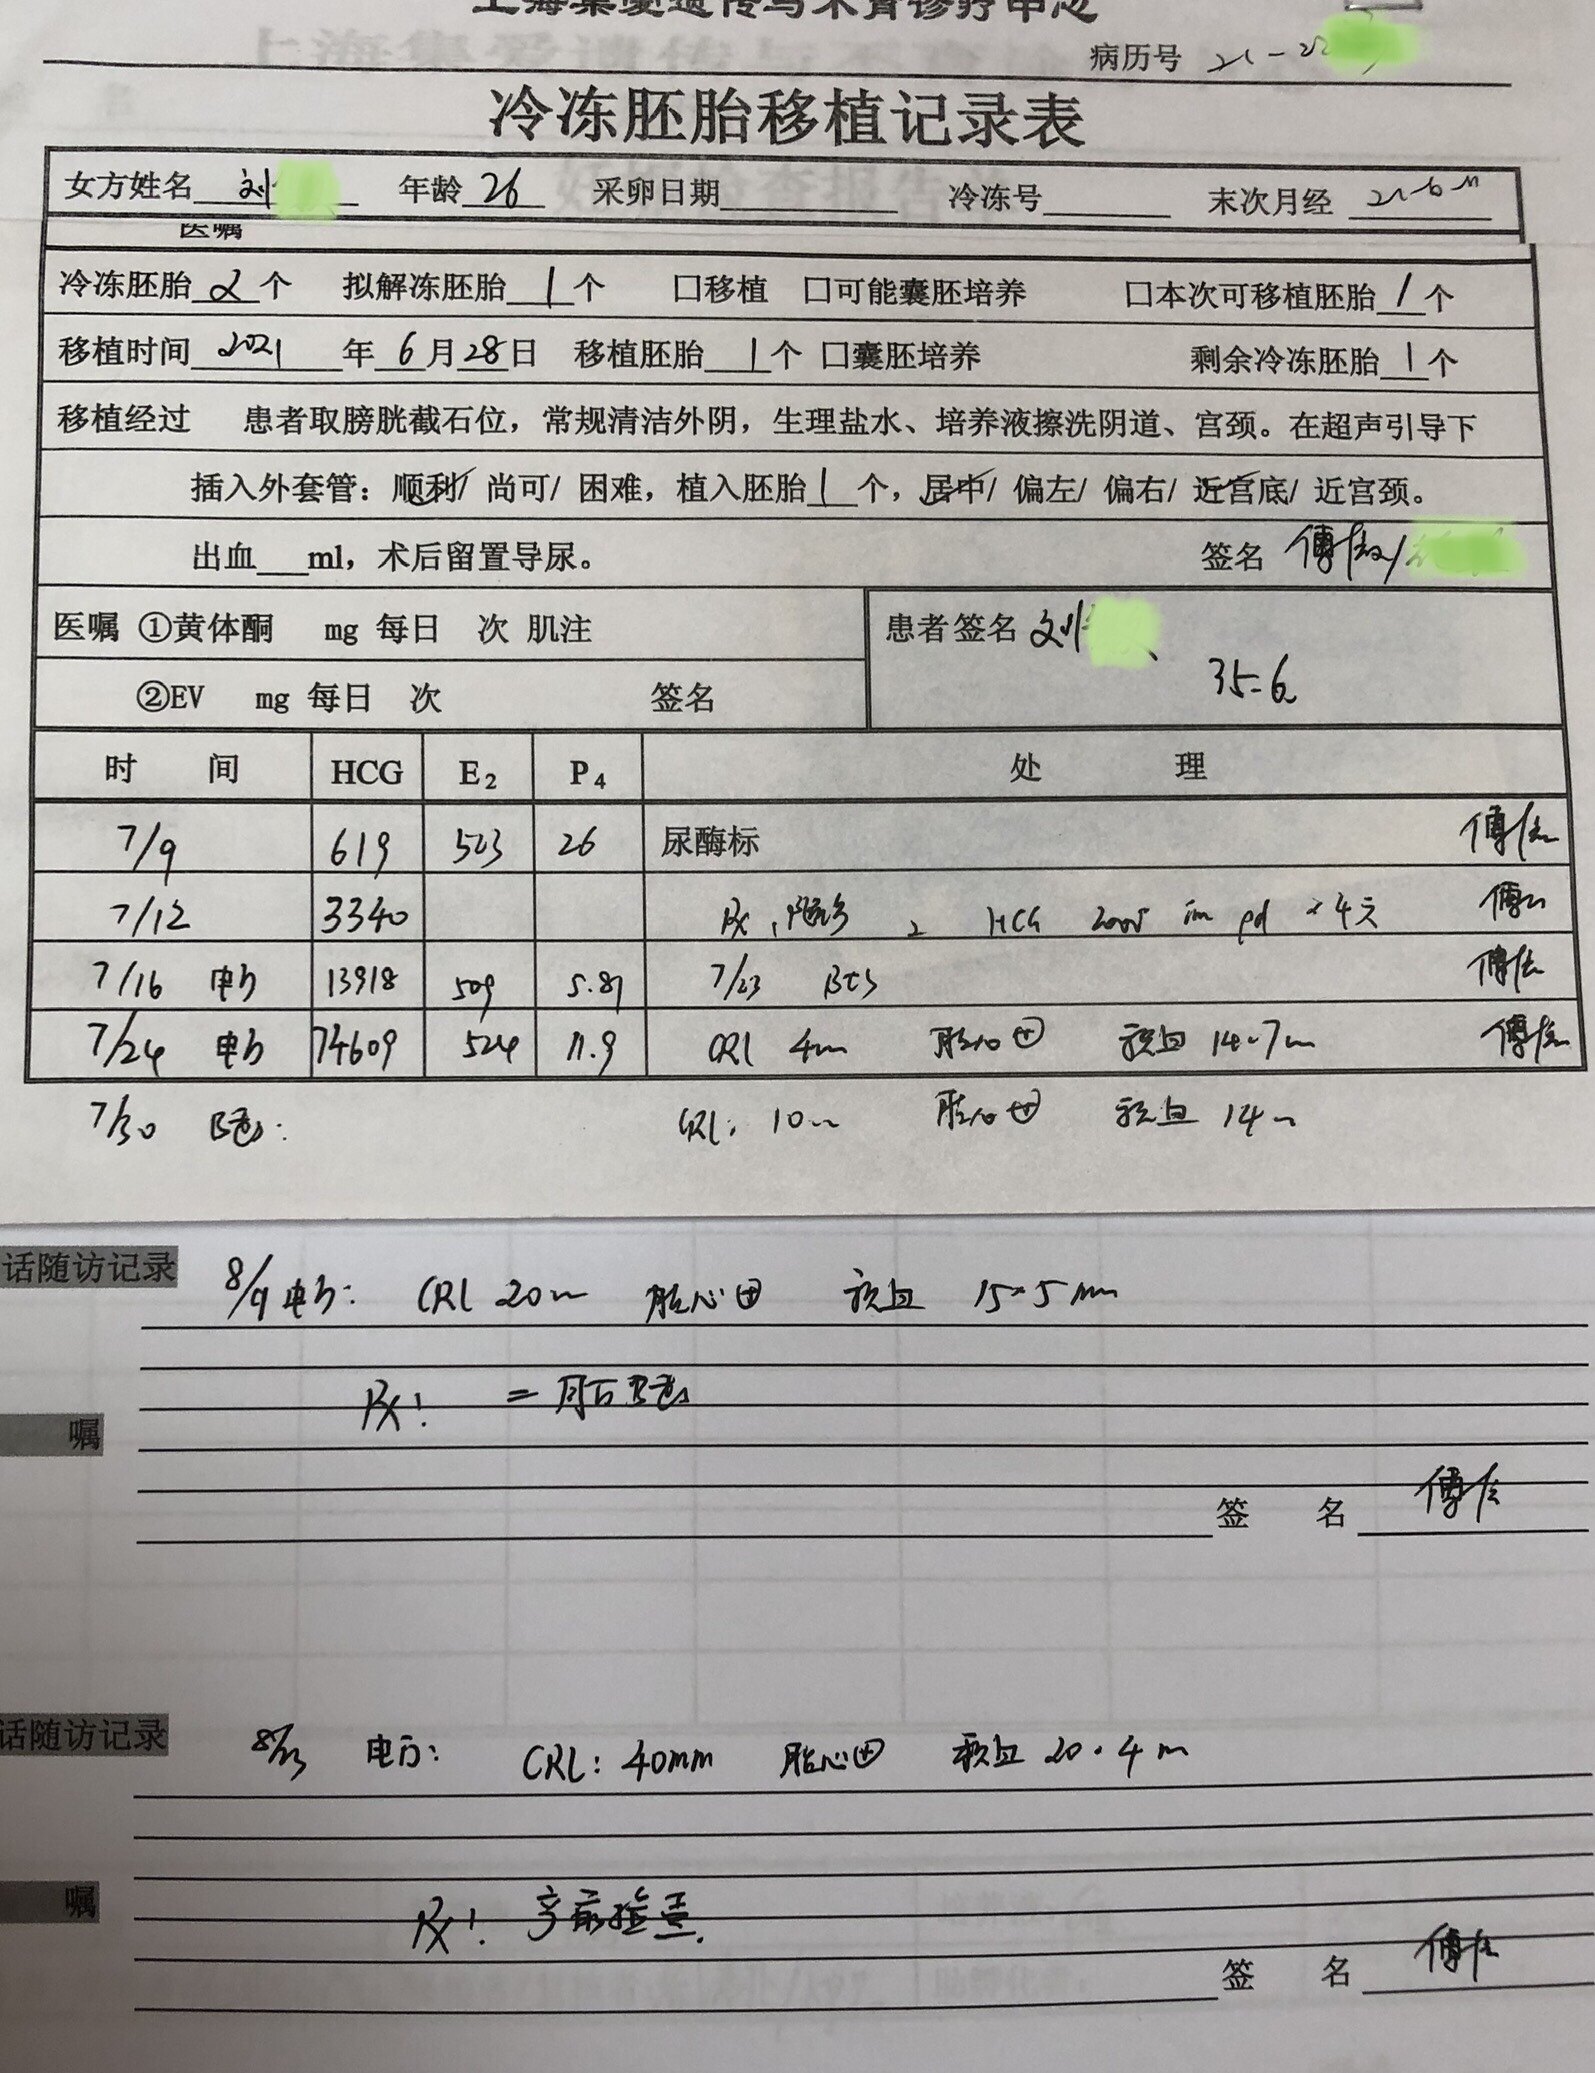 病历号 21-22
冷冻胚胎移植记录表
女方姓名 刘 年龄 26 采卵日期 冷冻号 末次月经
医嘱
冷冻胚胎 2 个 拟解冻胚胎 1 个 □移植 □可能囊胚培养 □本次可移植胚胎 1 个
移植时间 2021 年 6 月 28 日 移植胚胎 1 个 □囊胚培养 剩余冷冻胚胎 1 个
移植经过 患者取膀胱截石位，常规清洁外阴，生理盐水、培养液擦洗阴道、宫颈。在超声引导下
插入外套管：顺利/ 尚可/ 困难，植入胚胎 1 个，居中/ 偏左/ 偏右/ 近宫底/ 近宫颈。
出血 ml，术后留置导尿。 签名
医嘱 ①黄体酮 mg 每日 次 肌注 患者签名 刘
②EV mg 每日 次 签名 35-6
时 间 HCG E2 P4 处 理
7/9 619 503 26 尿酶标
7/12 3340 Rx HCG im qd ×4天
7/16 电访 13918 509 5.81 7/23
7/24 电访 74609 524 11.9 CRL 4mm 胎心⊕ 积血 14×7mm
7/30 B超: CRL: 10mm 胎心⊕ 积血 14
话随访记录 8/9 电访: CRL 20mm 胎心⊕ 积血 15×5mm
嘱 Rx: 一周后B超
签 名
话随访记录 8/23 电访: CRL: 40mm 胎心⊕ 积血 20×4m
嘱 Rx: 产前检查.
签 名